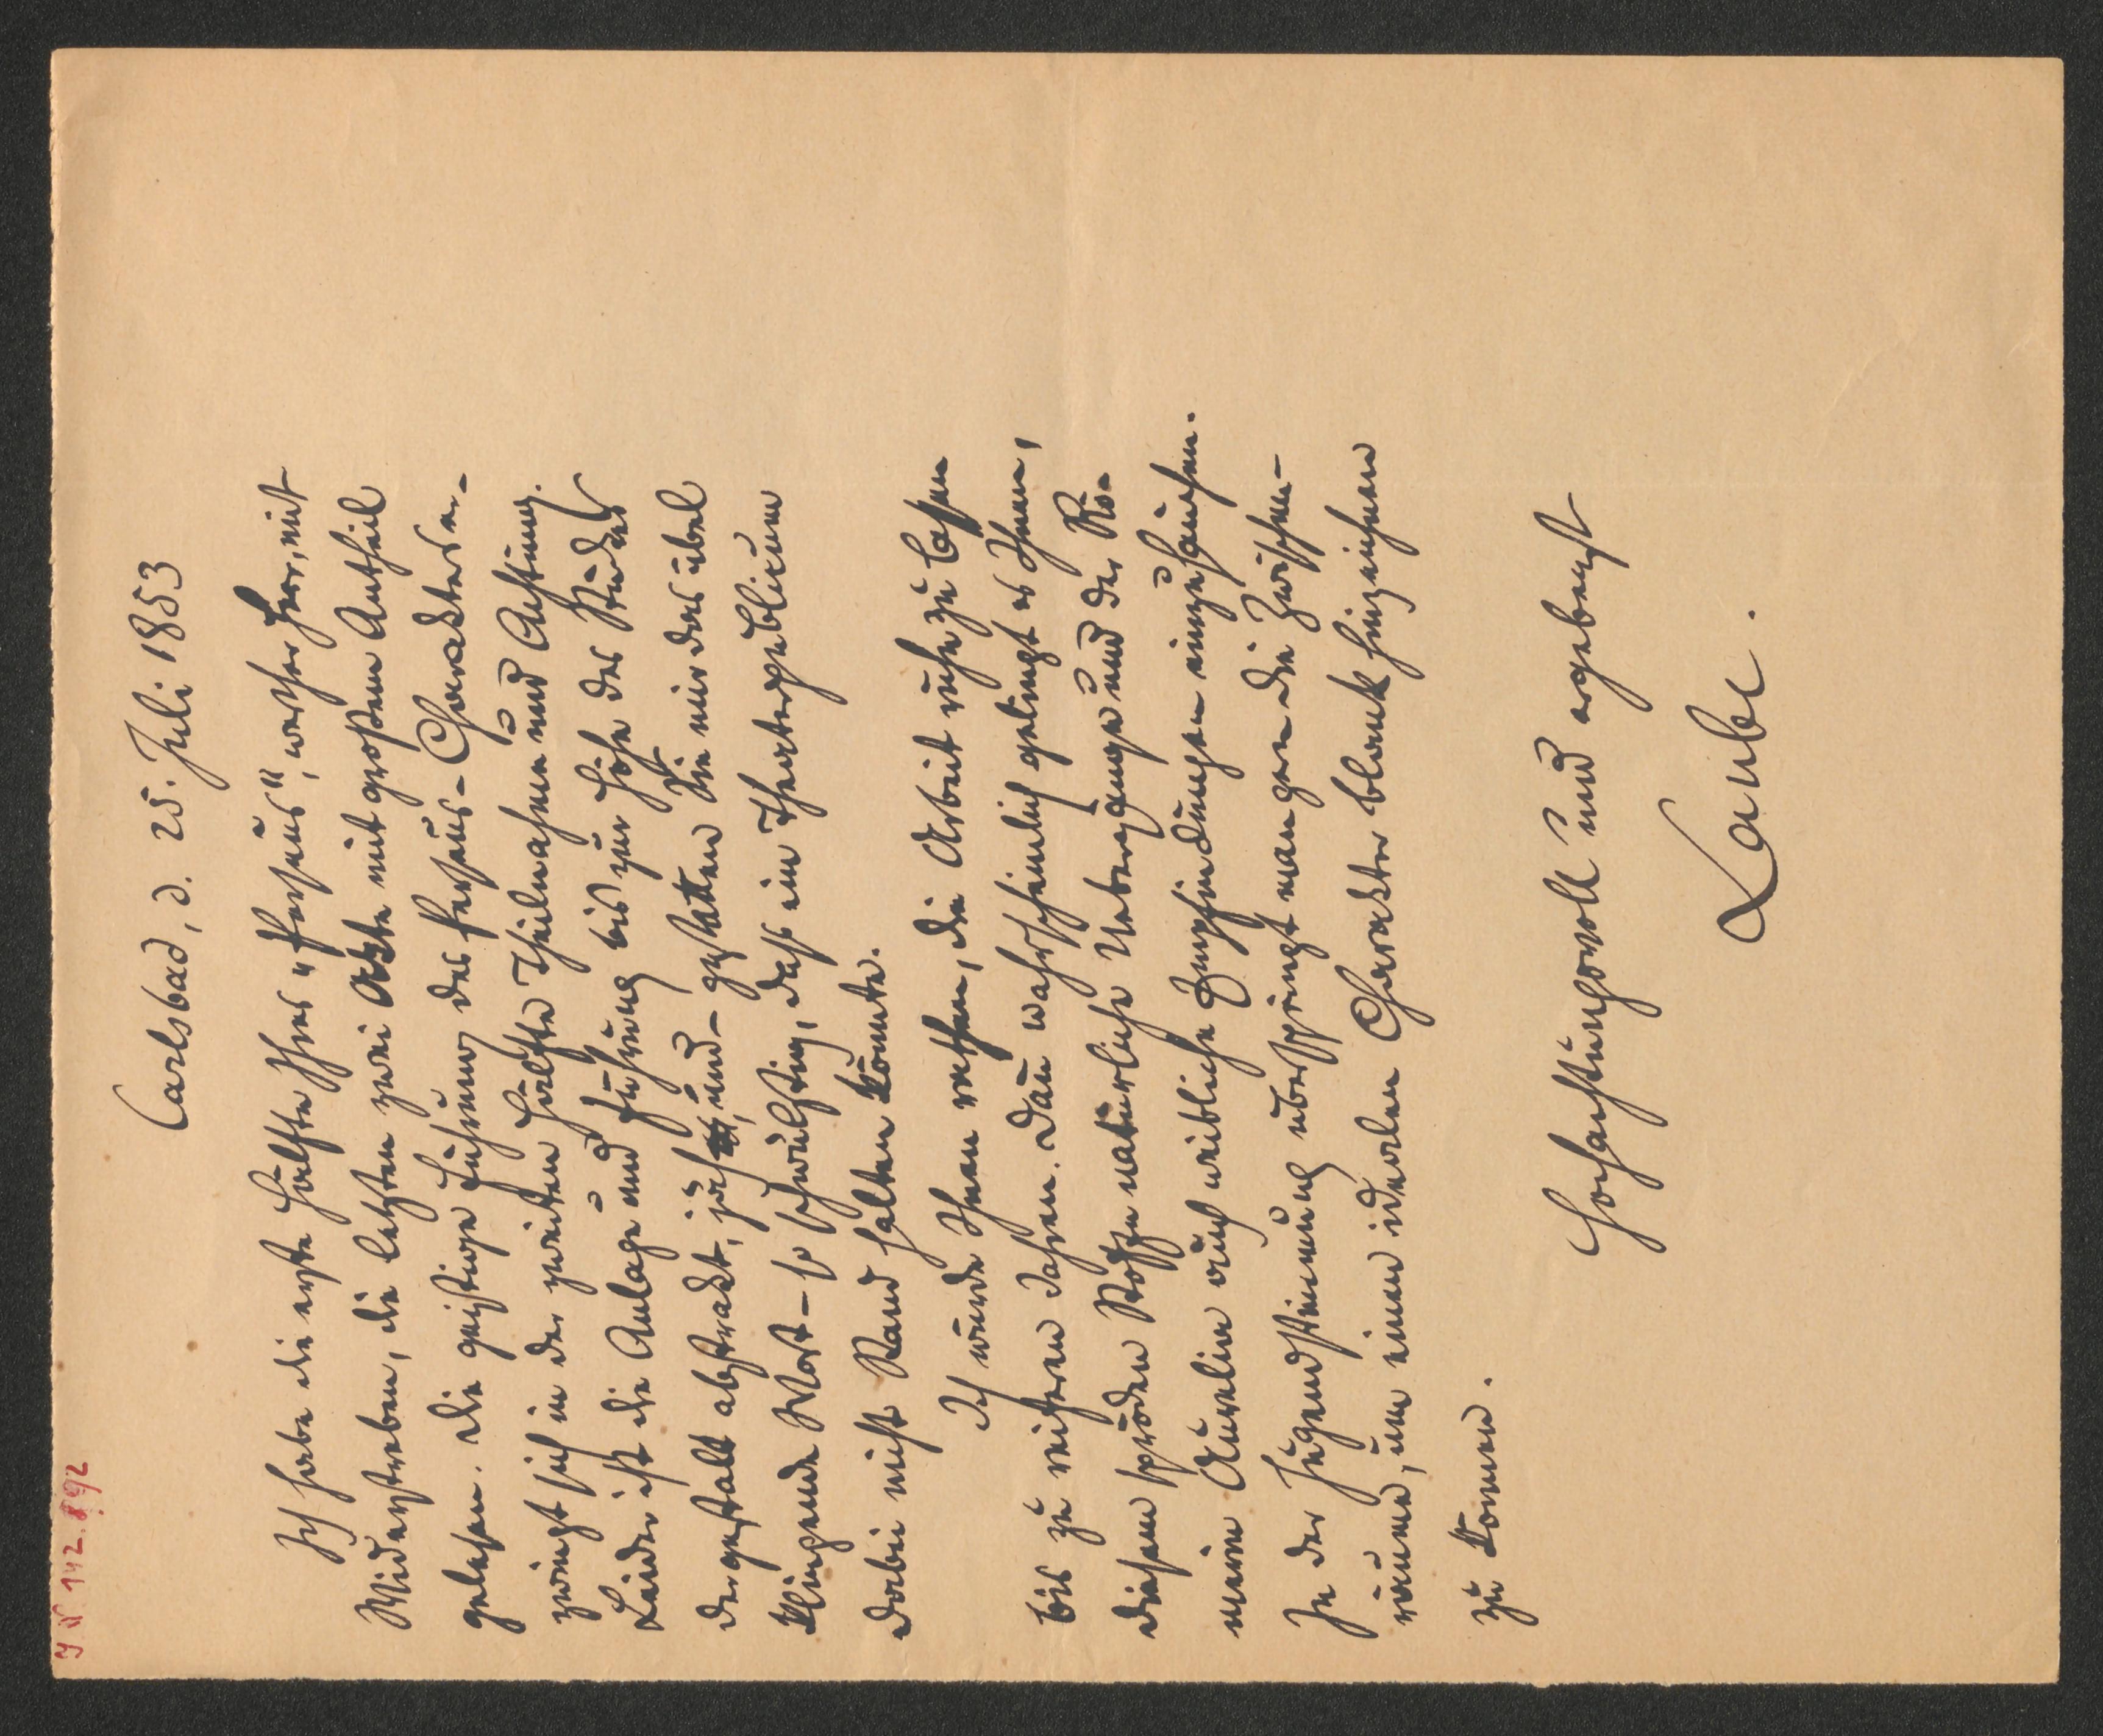 I N 142.892
Carlsbad, d. 25. Juli 1853
Ich habe die erste Hälfte Ihres „Perseus“, werther Herr, mit
Widerstreben, die letzten zwei Akte mit großem Antheil
gelesen. Die geistige Führung des Perseus-Charakters er-
zwingt sich in der zweiten Hälfte Theilnahme und Achtung.
Leider ist die Anlage und Führung bis zur Höhe des Stückes
dergestalt abstrakt, und – gestatten Sie mir das übel
klingende Wort – so schwülstig, daß ein Theaterpublicum
dabei nicht Stand halten könnte.
Ich würde Ihnen rathen, die Arbeit ruhn zu lassen
bis zu reiferen Jahren. Dan wahrscheinlich gelingt es Ihnen,
diesem spröden Stoffe natürliche Uebergänge und der Rö-
merin Aurelia auch weibliche Empfindungen einzuhauchen.
In der Jugendstimmung überspringt man gern die Zwischen-
räume, um einen idealen Charakter blank hinzeichnen
zu könen.
Hochachtungsvoll und ergebenst
Laube.